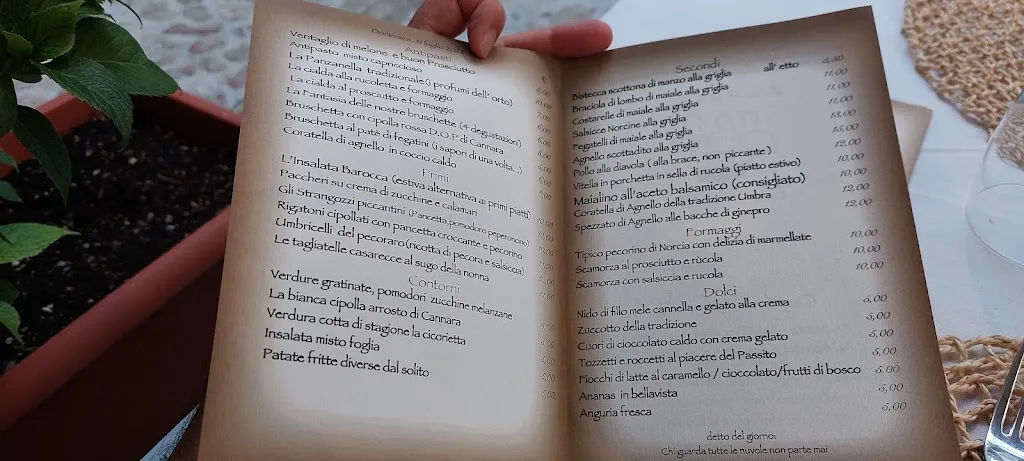 Domenica, 31 luglio
Antipasti
€
Ventaglio di melone e buon Prosciutto 8,00
Antipasto misto capriccioso 10,00
La Panzanella tradizionale (i profumi dell' orto) 7,00
La cialda alla rucoletta e formaggio
La cialda al prosciutto e formaggio
La Fantasia delle nostre bruschette (4 degustazioni)
Bruschetta con cipolla rossa D.O.P. di Cannara
Bruschetta al patè di fegatini (i sapori di una volta...)
Coratella di agnello in coccio caldo
Primi
L'Insalata Barocca (estiva alternativa ai primi piatti)
Paccheri su crema di zucchine e calamari
Gli Strangozzi piccantini (Pancetta pomodoro peperoncino)
Rigatoni cipollati con pancetta croccante e pecorino
Umbricelli del pecoraro (ricotta di pecora e salsiccia)
Le tagliatelle casarecce al sugo della nonna
Contorni
Verdure gratinate, pomodori zucchine melanzane
La bianca cipolla arrosto di Cannara
Verdura cotta di stagione la cicorietta
Insalata misto foglia
Patate fritte diverse dal solito
Secondi
Bistecca scottona di manzo alla griglia all' etto
Braciola di lombo di maiale alla griglia 11,00
Costarelle di maiale alla griglia 11,00
Salsicce Norcine alla griglia 11,00
Fegatelli di maiale alla griglia
Agnello scottadito alla griglia
Pollo alla diavola (alla brace, non piccante) 12,00
Vitella in porchetta in sella di rucola (piatto estivo) 10,00
Maialino all'aceto balsamico (consigliato) 10,00
Coratella di Agnello della tradizione Umbra 12,00
Spezzato di Agnello alle bacche di ginepro 12,00
Formaggi
Tipico pecorino di Norcia con delizia di marmellate 10,00
Scamorza al prosciutto e rùcola 10,00
Scamorza con salsiccia e rucola 10,00
Dolci
Nido di fillo mele cannella e gelato alla crema 6,00
Zuccotto della tradizione 6,00
Cuori di cioccolato caldo con crema gelato 6,00
Tozzetti e roccetti al piacere del Passito 6,00
Fiocchi di latte al caramello / cioccolato/frutti di bosco 6,00
Ananas in bellavista 6,00
Anguria fresca 6,00
detto del giorno:
Chi guarda tutte le nuvole non parte mai